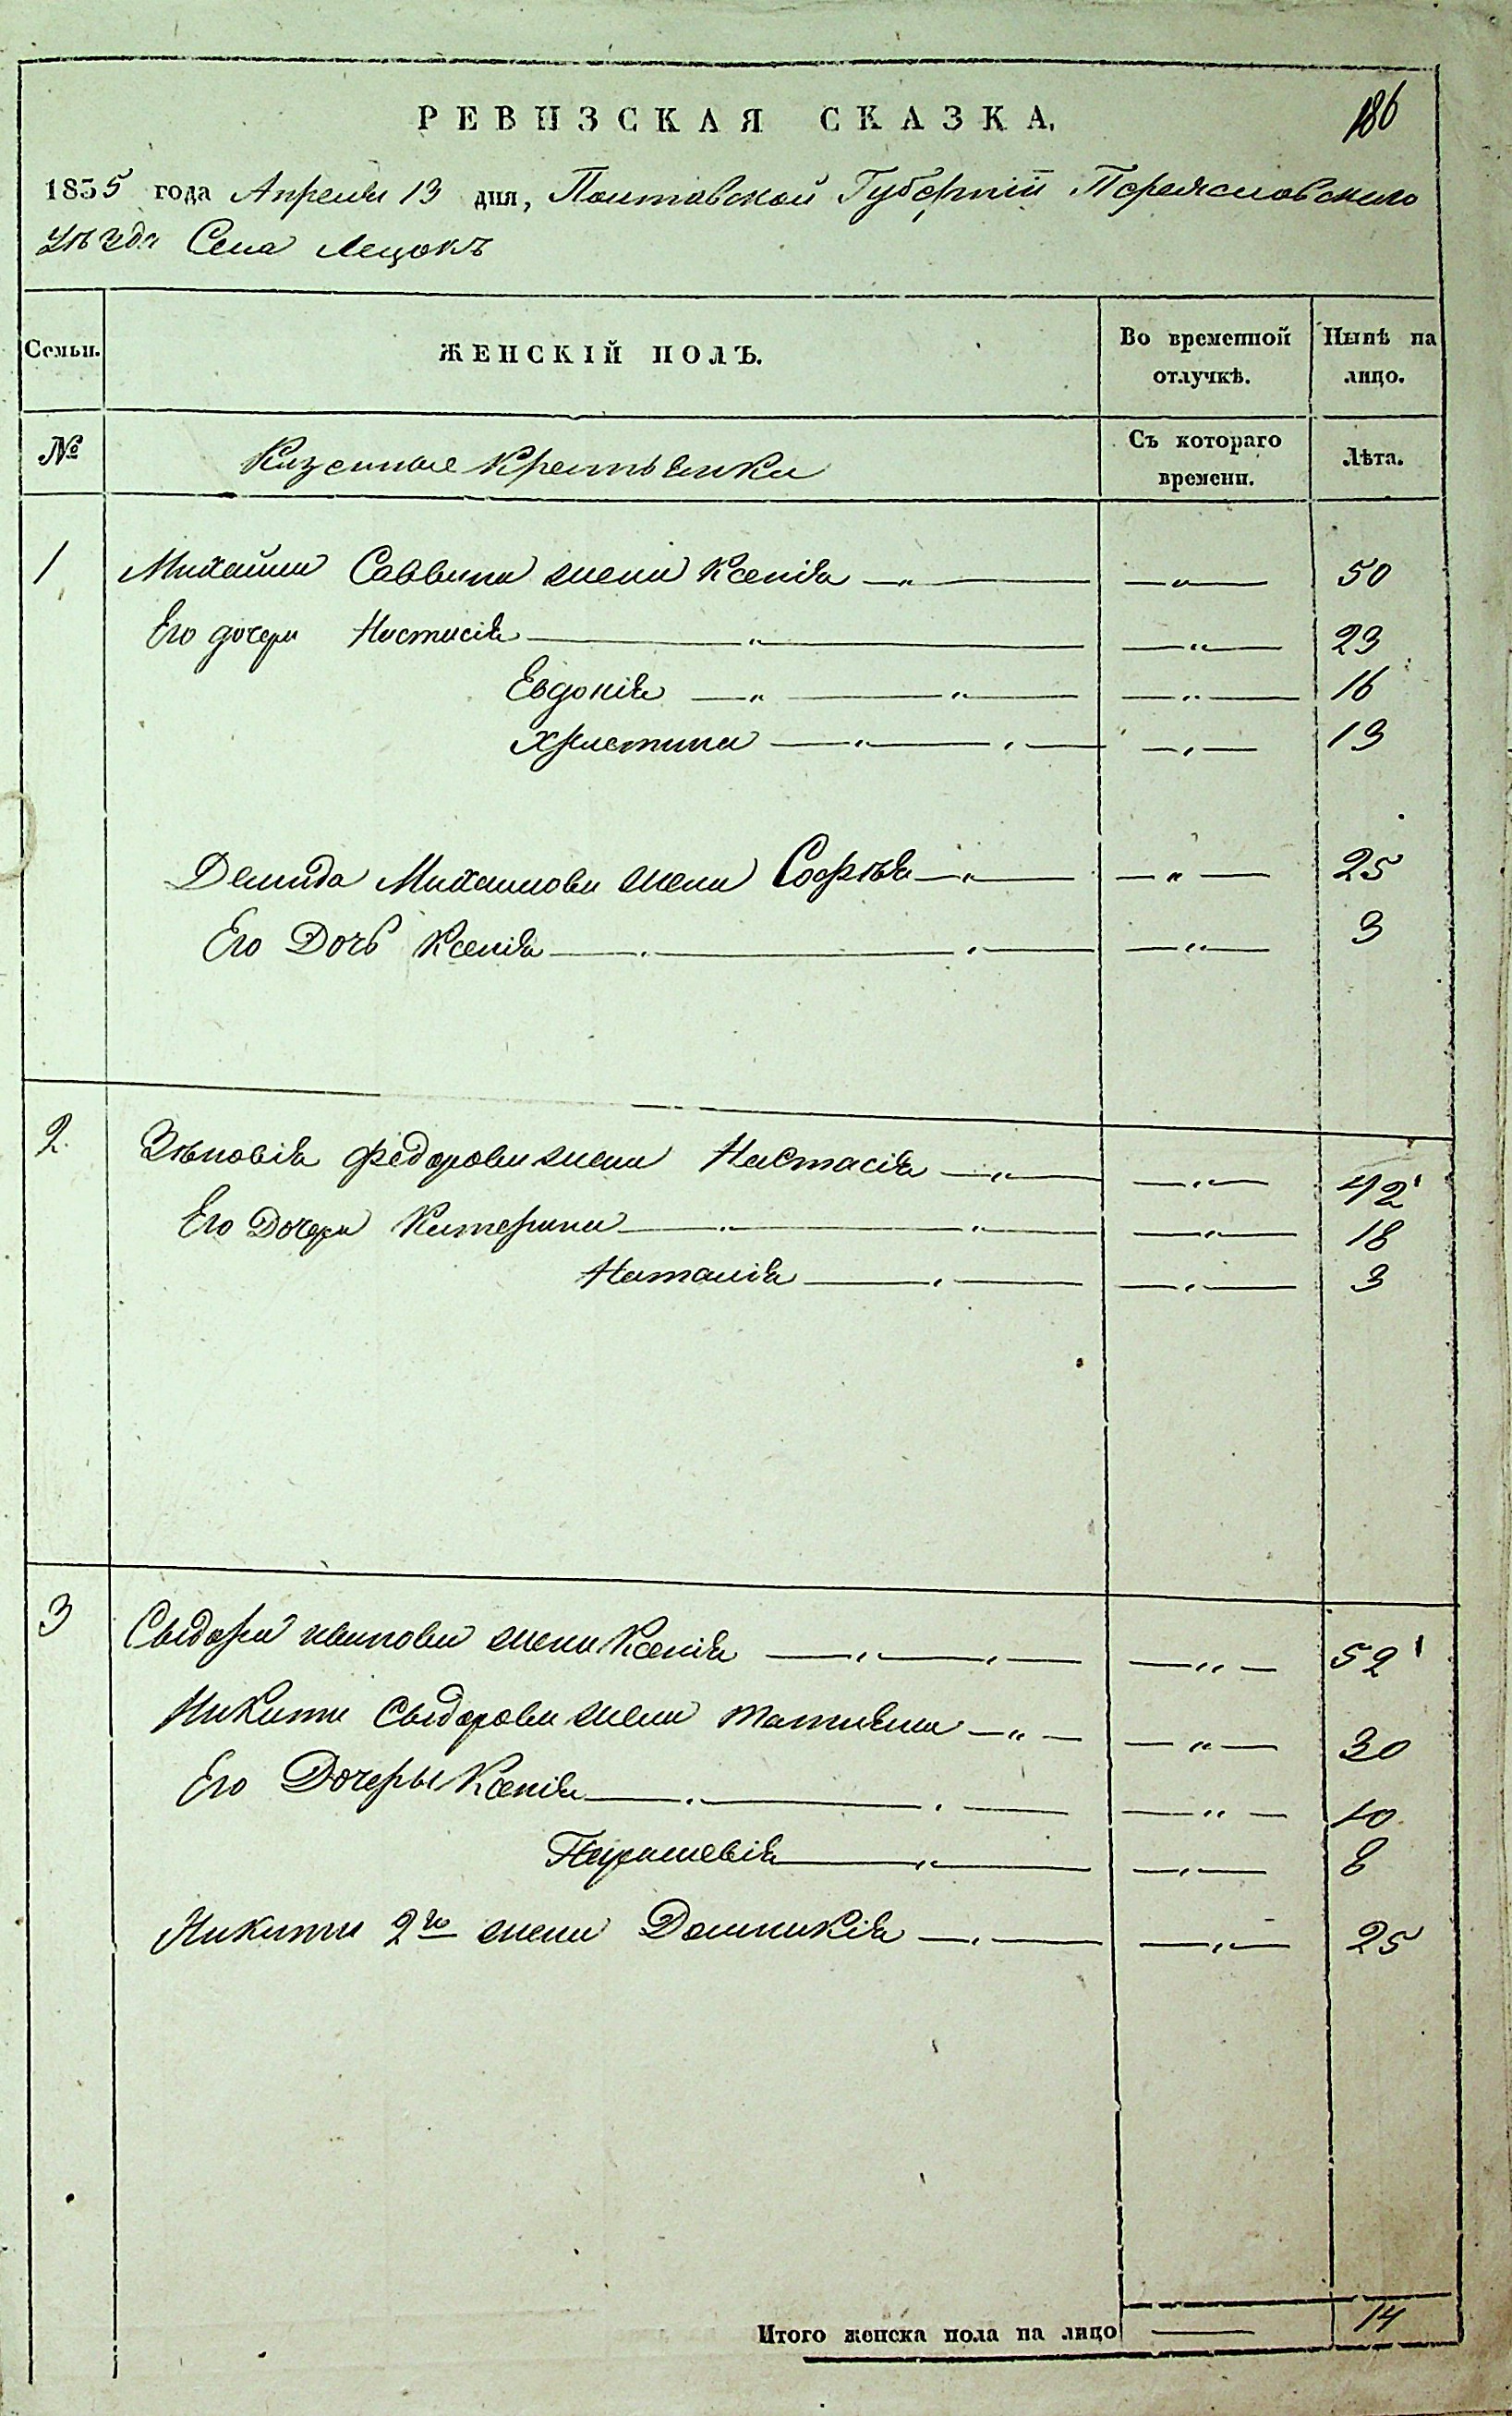 РЕВИЗСКАЯ СКАЗКА.
186
1835 года Апреля 13 дня, Полтавской Губерніи Переясловскаго
уѣзда Села Лецокъ
Семьи.
ЖЕНСКІЙ ПОЛЪ.
Во временной отлучкѣ.
Нынѣ на лицо.
№
Казенные Крестьянки
Съ котораго времени.
Лѣта.
1 Михайла Саввина жена Ксенія —„— —„— 50
Его дочери Настасія —„— —„— 23
Евдокія —„— „— —„— 16
Христина —„— „— —„— 13
Демида Михаилова жена Софія —„— —„— 25
Его Дочь Ксенія —„— „— —„— 3
2 Зѣновія Федорова жена Настасія —„— —„— 42
Его Дочери Катерина —„— „— —„— 18
Наталія —„— —„— 3
3 Сыдора иванова жена Ксенія —„— „— —„— 52
Никиты Сыдорова жена Татияна —„— —„— 30
Его Дочеры Ксенія —„— „— —„— 10
Параскевія —„— —„— 8
Никиты 2я жена Домникія —„— —„— 25
Итого женска пола на лицо — 14